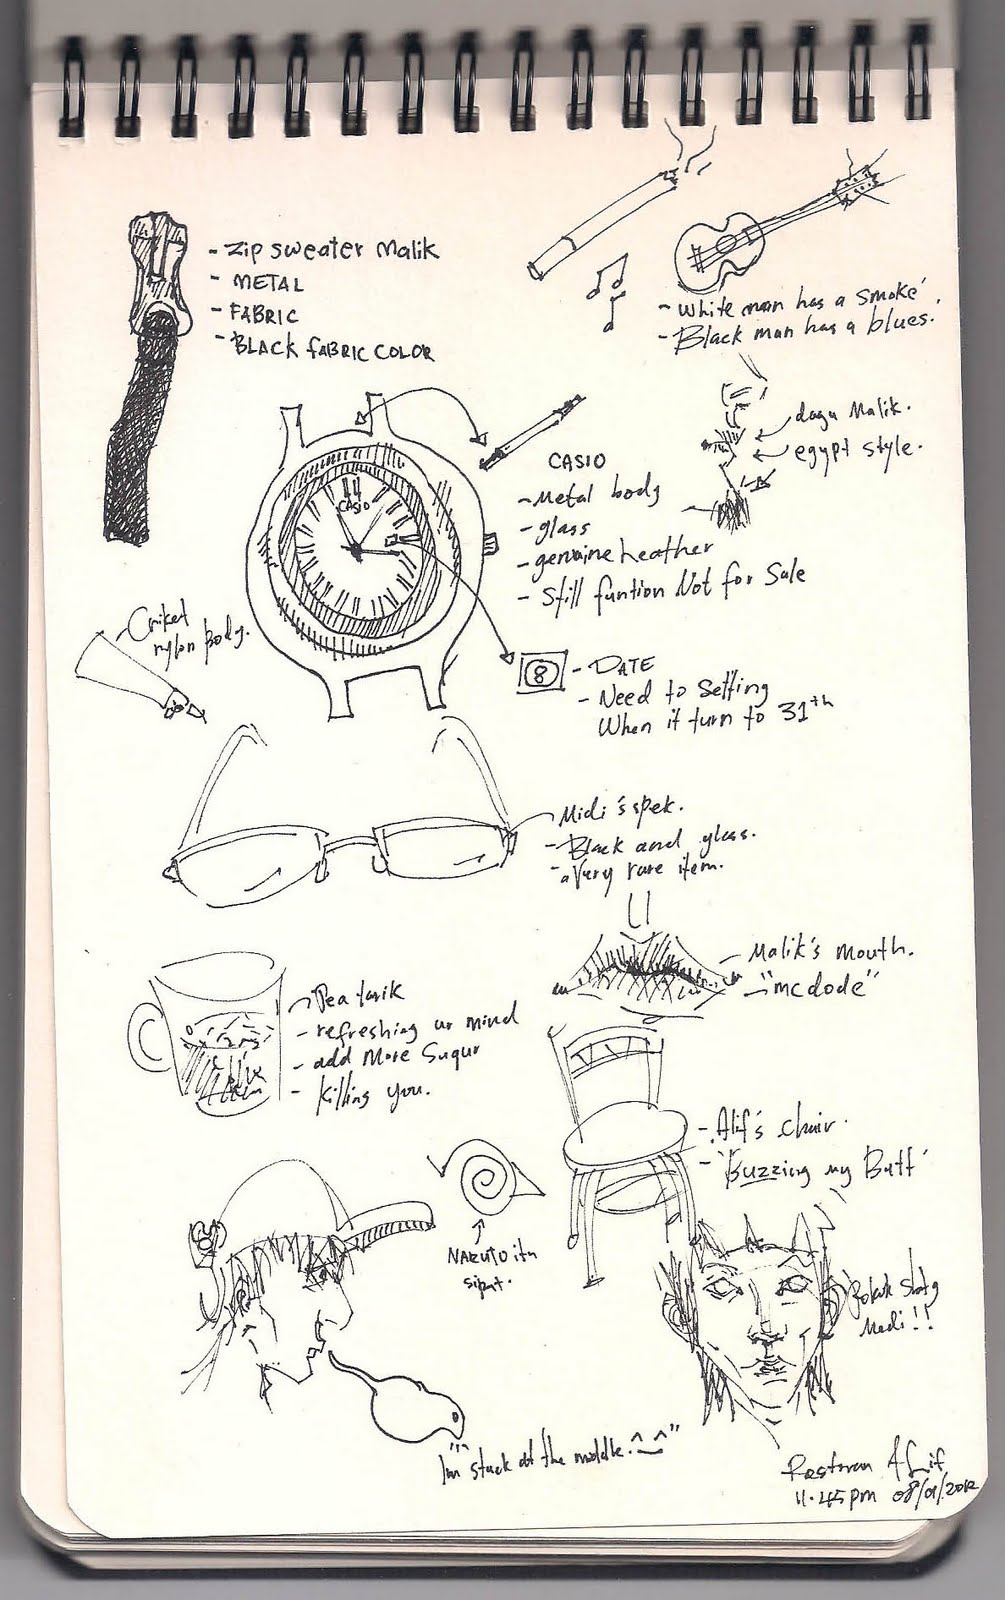 - Zip sweater Malik
- METAL
- FABRIC
- BLACK FABRIC COLOR
- White man has a smoke'.
- Black man has a blues.
dagu Malik.
egypt style.
CASIO
CASIO
- Metal body
- glass
- genuine heather
- Still funtion Not for Sale
- Criket
nylon body.
8
- DATE
- Need to Setting
When it turn to 31th
Midi's spek.
- Black and glass.
- a Very rare item.
- Malik's mouth.
- "mcdode"
- Tea tarik
- refreshing ur mind
- add More Sugur
- killing you.
- Alif's chair.
- 'Buzzing my Butt'
NARUTO itu
siput.
Medi!!
"I'm stuck at the middle.^_^"
Restoran ALif
11.45pm 08/01/2012